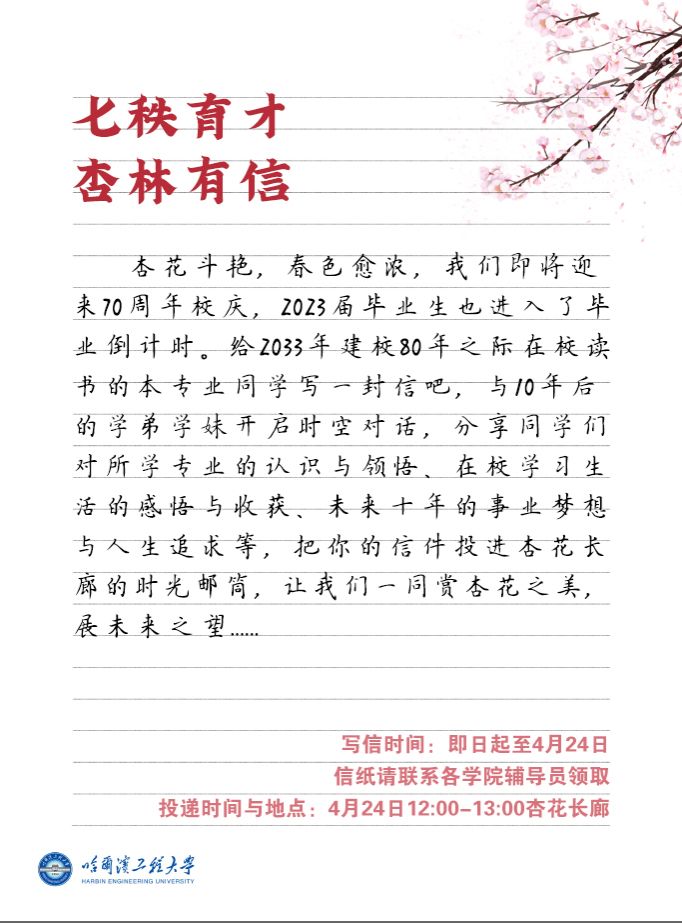 七秩育才
杏林有信
杏花斗艳，春色愈浓，我们即将迎
来70周年校庆，2023届毕业生也进入了毕
业倒计时。给2033年建校80年之际在校读
书的本专业同学写一封信吧，与10年后
的学弟学妹开启时空对话，分享同学们
对所学专业的认识与领悟、在校学习生
活的感悟与收获、未来十年的事业梦想
与人生追求等，把你的信件投进杏花长
廊的时光邮筒，让我们一同赏杏花之美，
展未来之望……
写信时间：即日起至4月24日
信纸请联系各学院辅导员领取
投递时间与地点：4月24日12:00-13:00杏花长廊
哈尔滨工程大学
HARBIN ENGINEERING UNIVERSITY